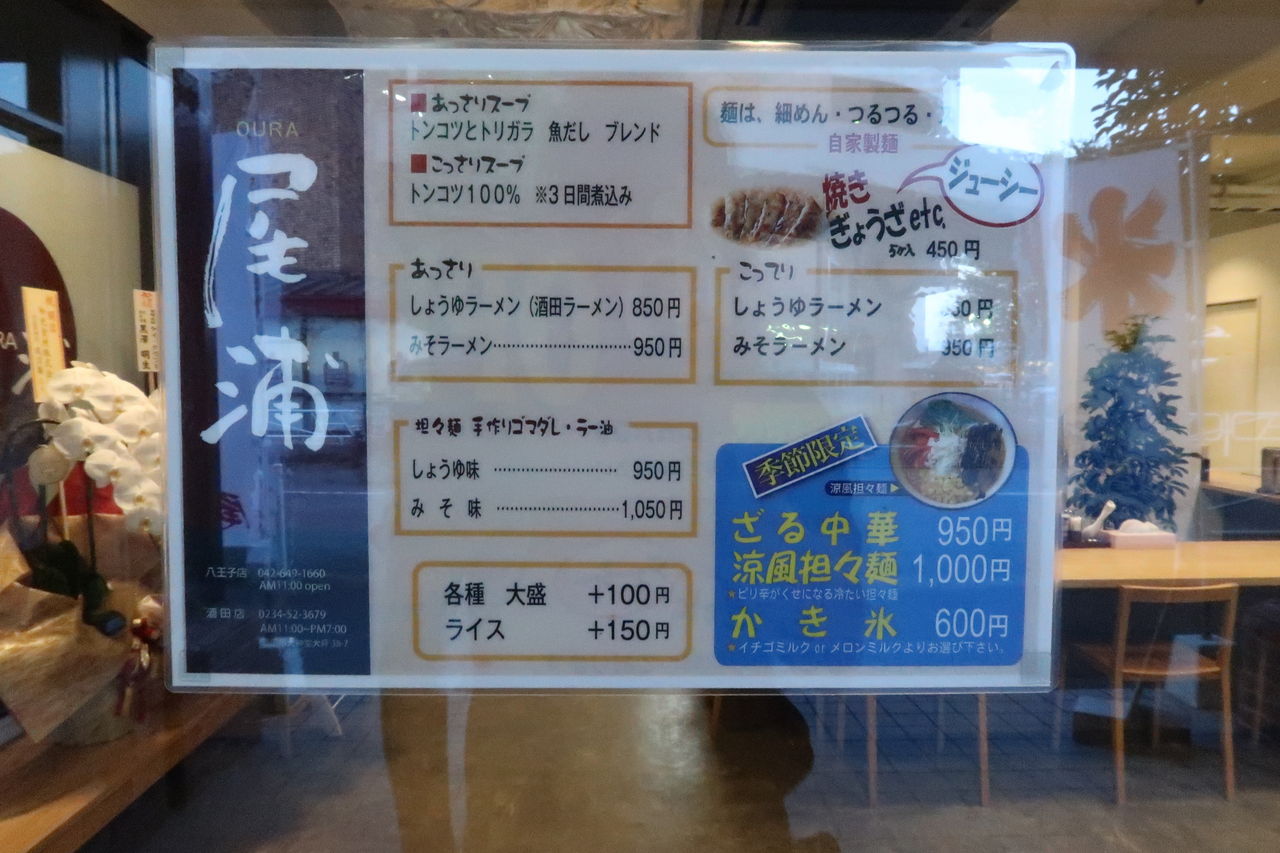 OURA
尾浦
八王子店 042-649-1660
AM11:00 open
酒田店 0234-52-3679
AM11:00~PM7:00
■あっさりスープ
トンコツとトリガラ 魚だし ブレンド
■こっさりスープ
トンコツ100% ※3日間煮込み
麺は、細めん・つるつる・
自家製麺
ジューシー
焼き
ぎょうざetc.
5ケ入 450円
あっさり
しょうゆラーメン(酒田ラーメン) 850円
みそラーメン……………………950円
こってり
しょうゆラーメン 50円
みそラーメン 950円
坦々麺 手作りゴマダレ・ラー油
しょうゆ味 …………………… 950円
みそ味 ……………………1,050円
各種 大盛 +100円
ライス +150円
季節限定
涼風担々麺▶
ざる中華 950円
涼風担々麺 1,000円
★ピリ辛がくせになる冷たい担々麺
かき氷 600円
★イチゴミルク or メロンミルクよりお選び下さい。
氷